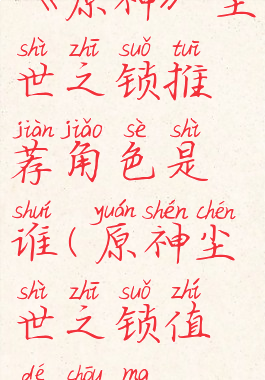 《原神》尘
shì zhī suǒ tuī
世之锁推
jiàn jiǎo sè shì
荐角色是
shuí yuán shén chén
谁(原神尘
shì zhī suǒ zhí
世之锁值
dé chōu ma